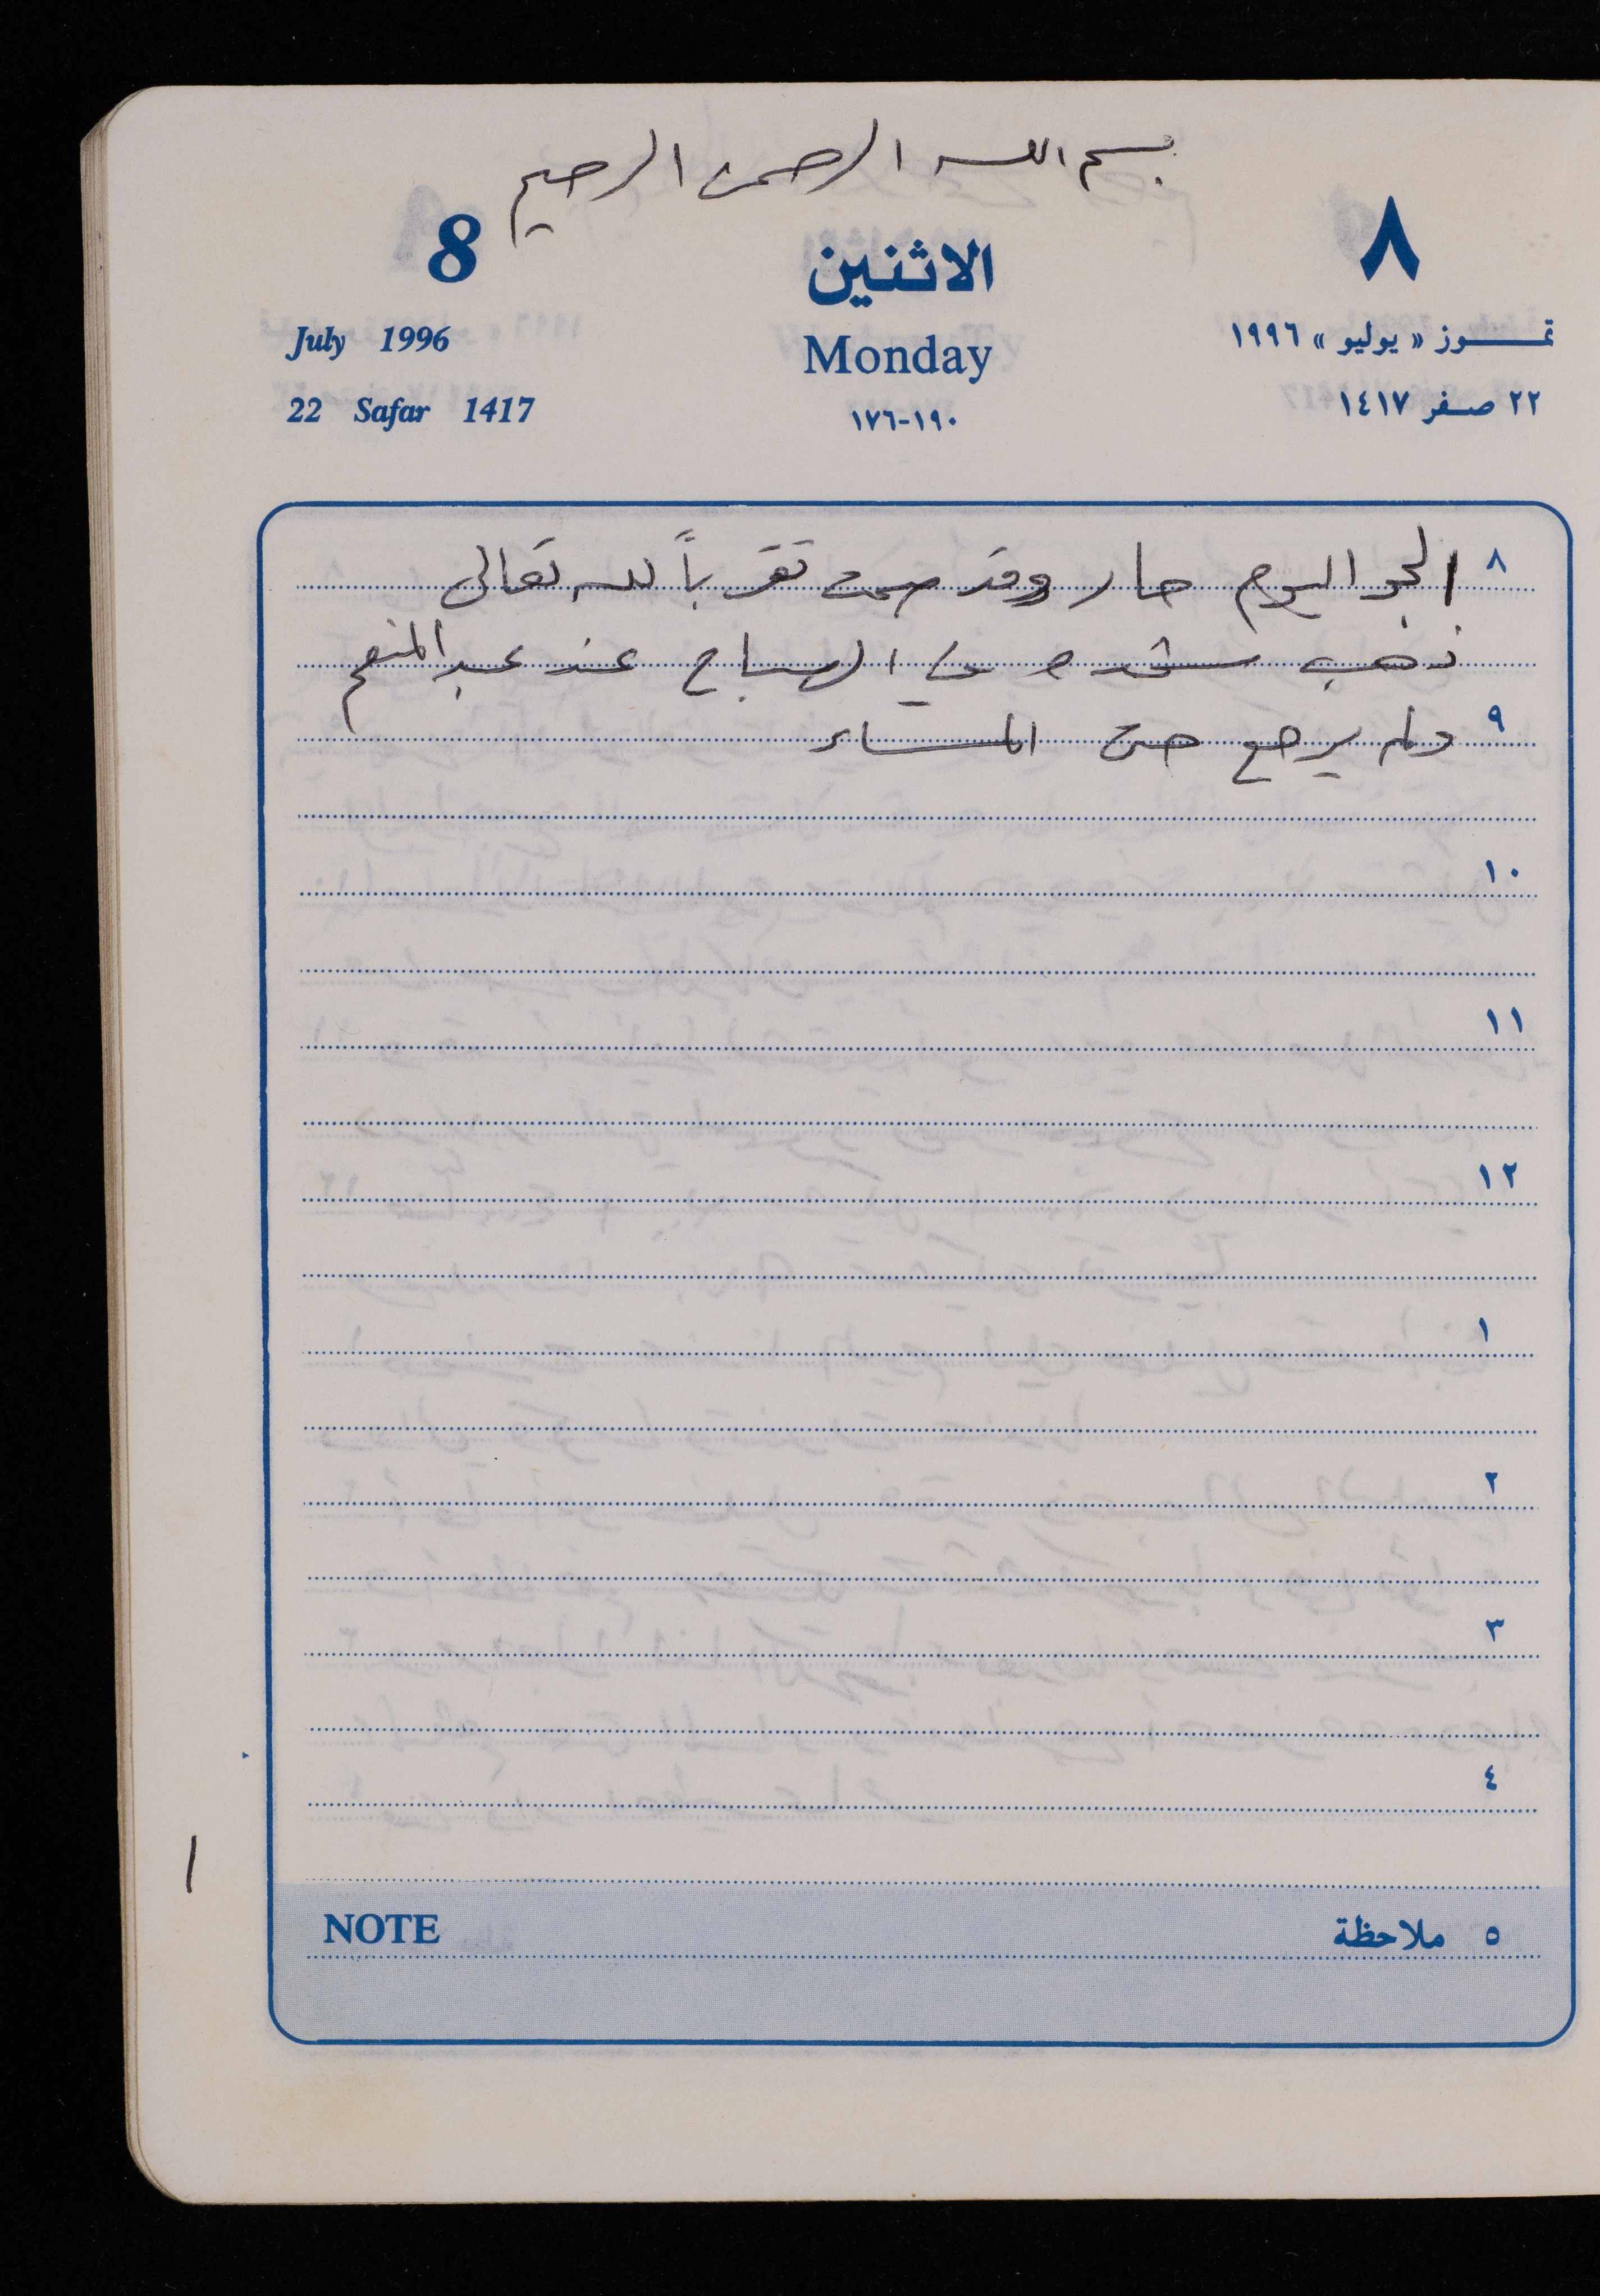 بسم الله الرحمن الرحيم
8 الاثنين ٨
July 1996 Monday تمـوز « يوليو » ١٩٩٦
22 Safar 1417 ١٧٦-١٩٠ ٢٢ صفر ١٤١٧
٨ الجو اليوم حار وقد صمت تقرباً لله تعالى
ذهب في الصباح عند عبد المنعم
٩ ولم يرجع حتى المساء
١٠
١١
١٢
١
٢
٣
٤
NOTE ٥ ملاحظة